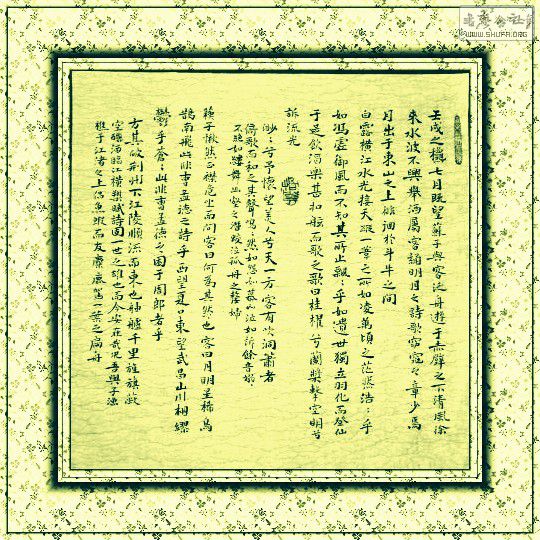 壬戌之秋七月既望蘇子與客泛舟遊于赤壁之下清風徐
來水波不興舉酒屬客誦明月之詩歌窈窕之章少焉
月出于東山之上徘徊於斗牛之間
白露橫江水光接天縱一葦之所如凌萬頃之茫然浩〻乎
如馮虛御風而不知其所止飄〻乎如遺世獨立羽化而登仙
于是飲酒樂甚扣舷而歌之歌曰桂櫂兮蘭槳擊空明兮
訴流光
渺〻兮予懷望美人兮天一方客有吹洞簫者
倚歌而和之其聲嗚〻然如怨如慕如泣如訴餘音嫋〻
不絕如縷舞幽壑之潛蛟泣孤舟之嫠婦
蘇子愀然正襟危坐而問客曰何為其然也客曰月明星稀烏
鵲南飛此非曹孟德之詩乎西望夏口東望武昌山川相繆
鬱乎蒼〻此非曹孟德之困于周郎者乎
方其破荊州下江陵順流而東也舳艫千里旌旗蔽
空釃酒臨江橫槊賦詩固一世之雄也而今安在哉況吾與子漁
樵于江渚之上侶魚蝦而友麋鹿駕一葉之扁舟
WWW.SHUFA.ORG